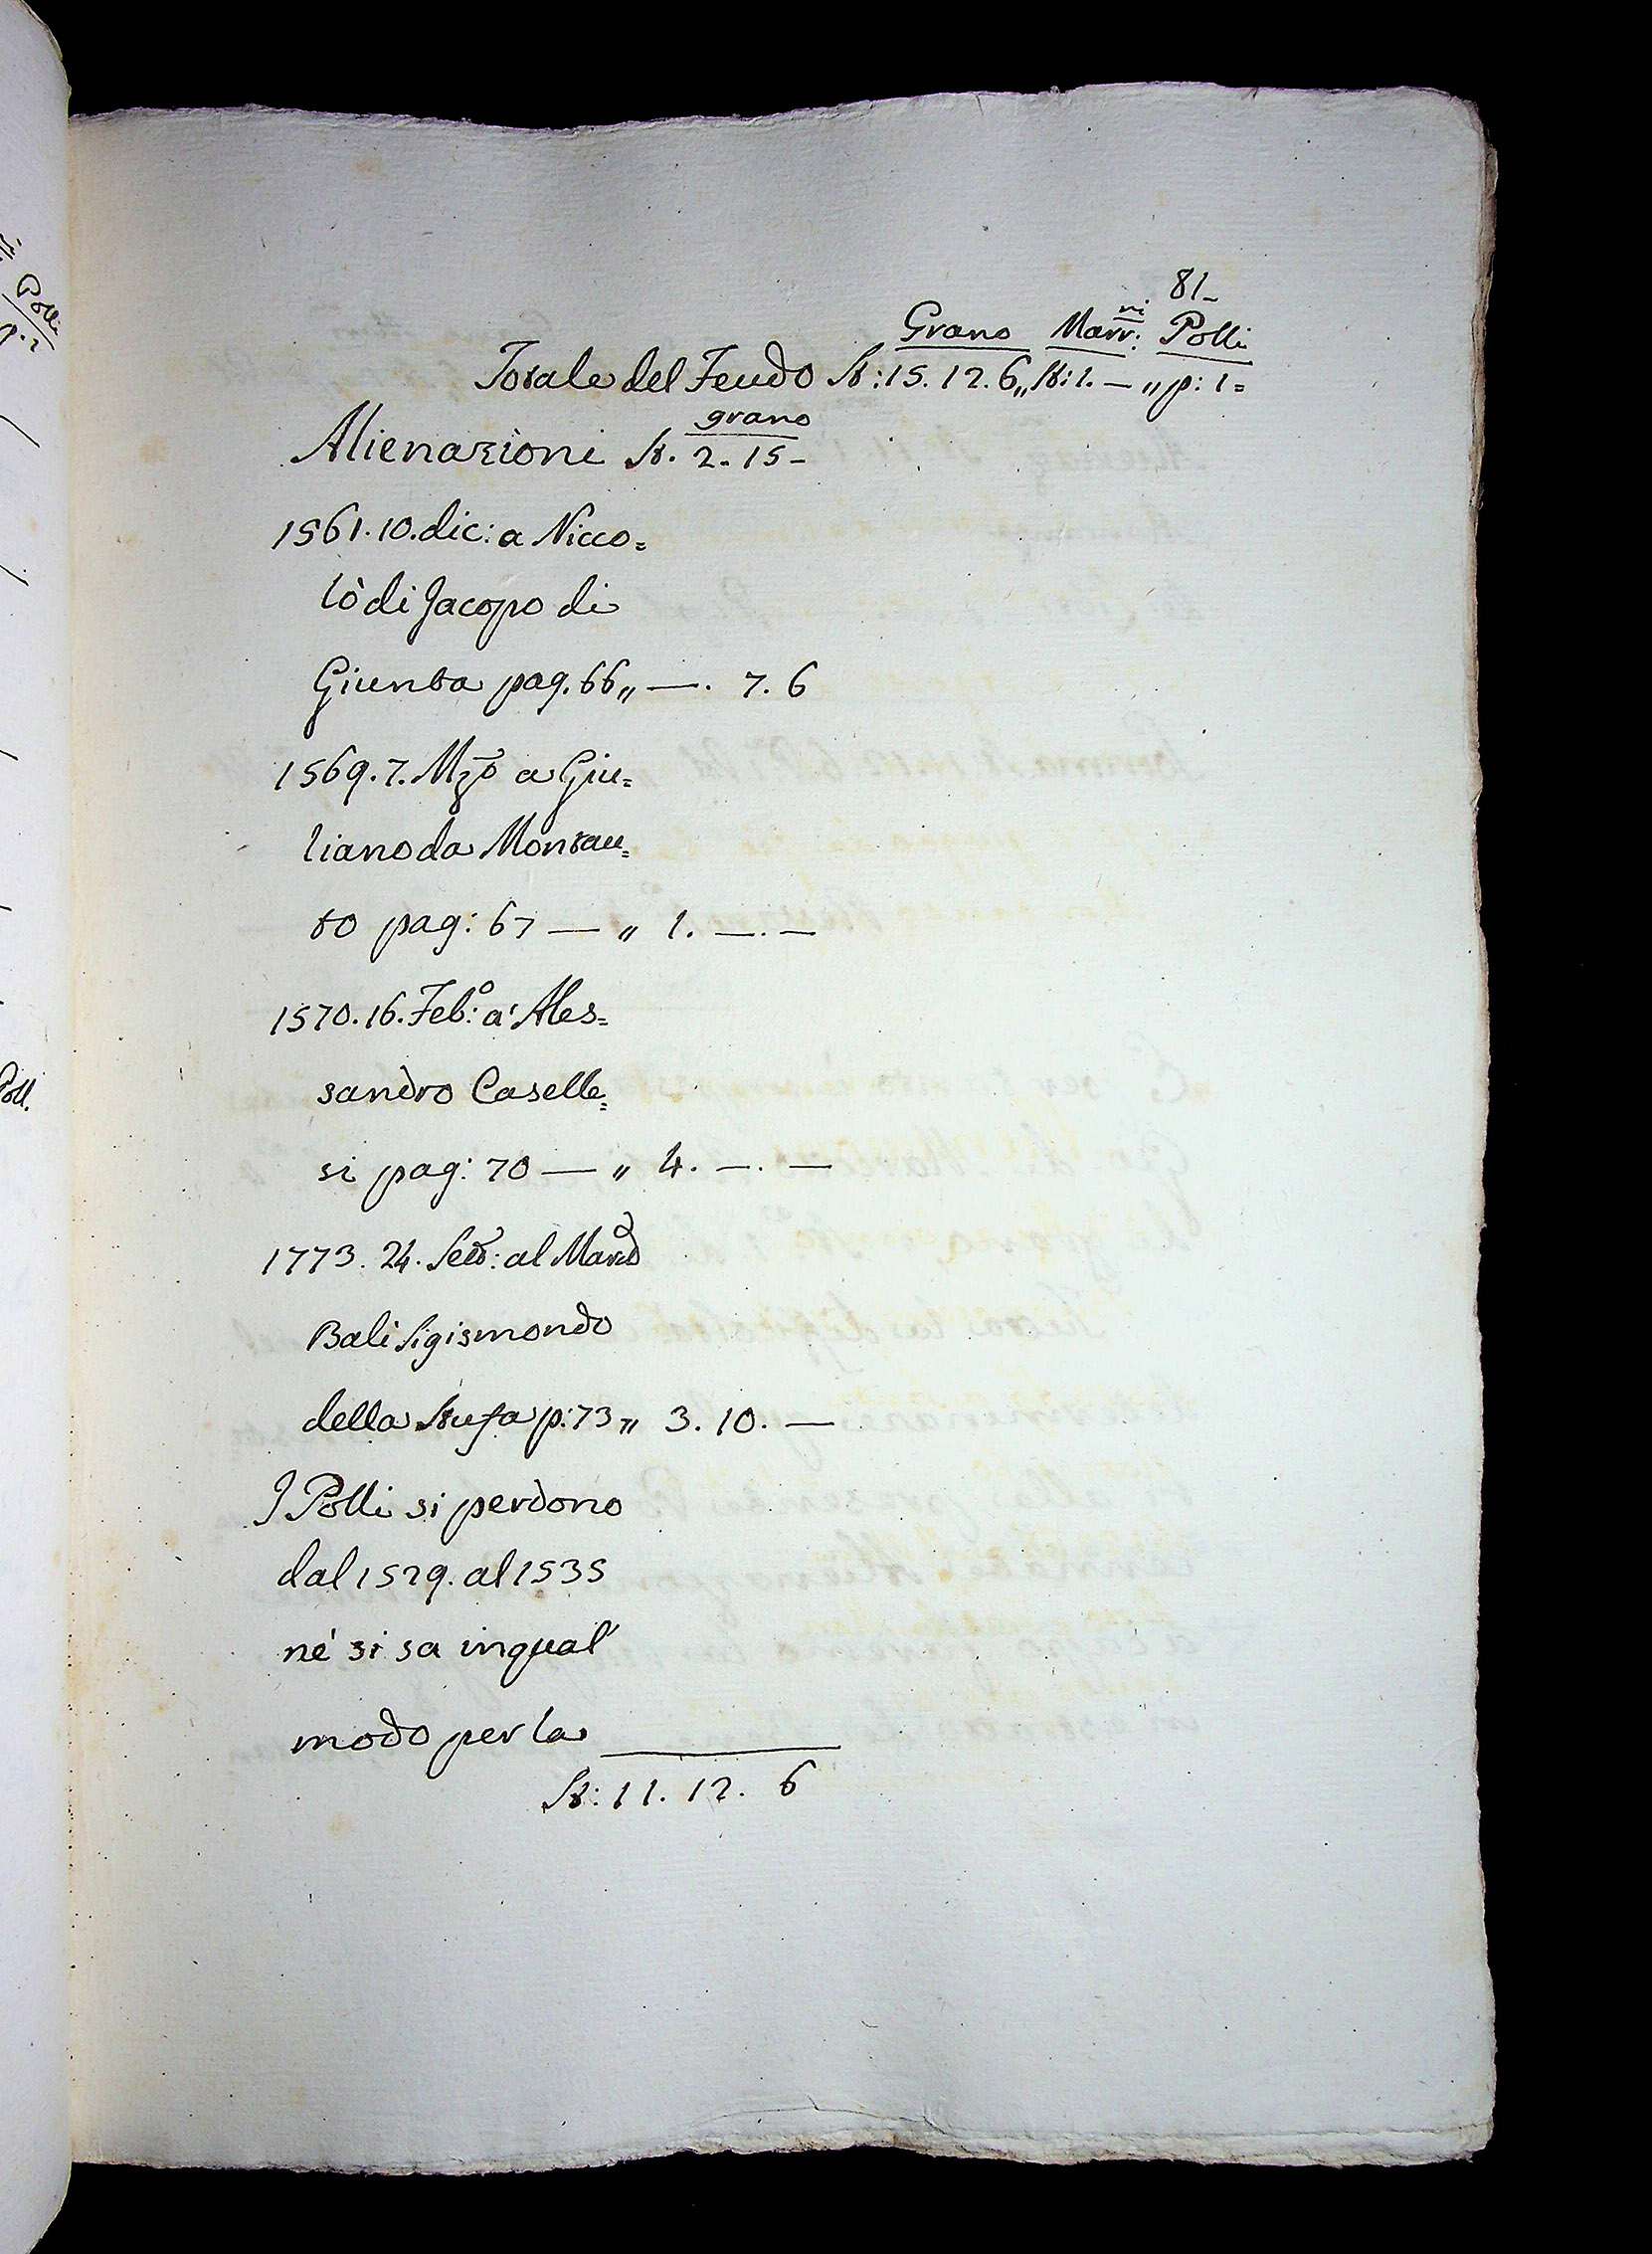 81-
Grano Marr:ni Polli
Totale del Feudo St: 15. 12. 6„ St: 1. — „ p: 1=
grano
Alienazioni St. 2. 15-
1561. 10. dic: a Nicco=
lò di Jacopo di
Giunta pag. 66„ —. 7. 6
1569. 7. Mzo a Giu=
liano da Montau=
to pag: 67 — „ 1. —. —
1570. 16. Feb:o a' Ales=
sandro Caselle=
si pag: 70 — „ 4. —. —
1773. 24. Sett: al March
Balì Sigismondo
della Stufa p: 73„ 3. 10. —
I Polli si perdono
dal 1529. al 1535
nè si sa in qual'
modo per la
St: 11. 12. 6
Polli
p. 2
Poll.